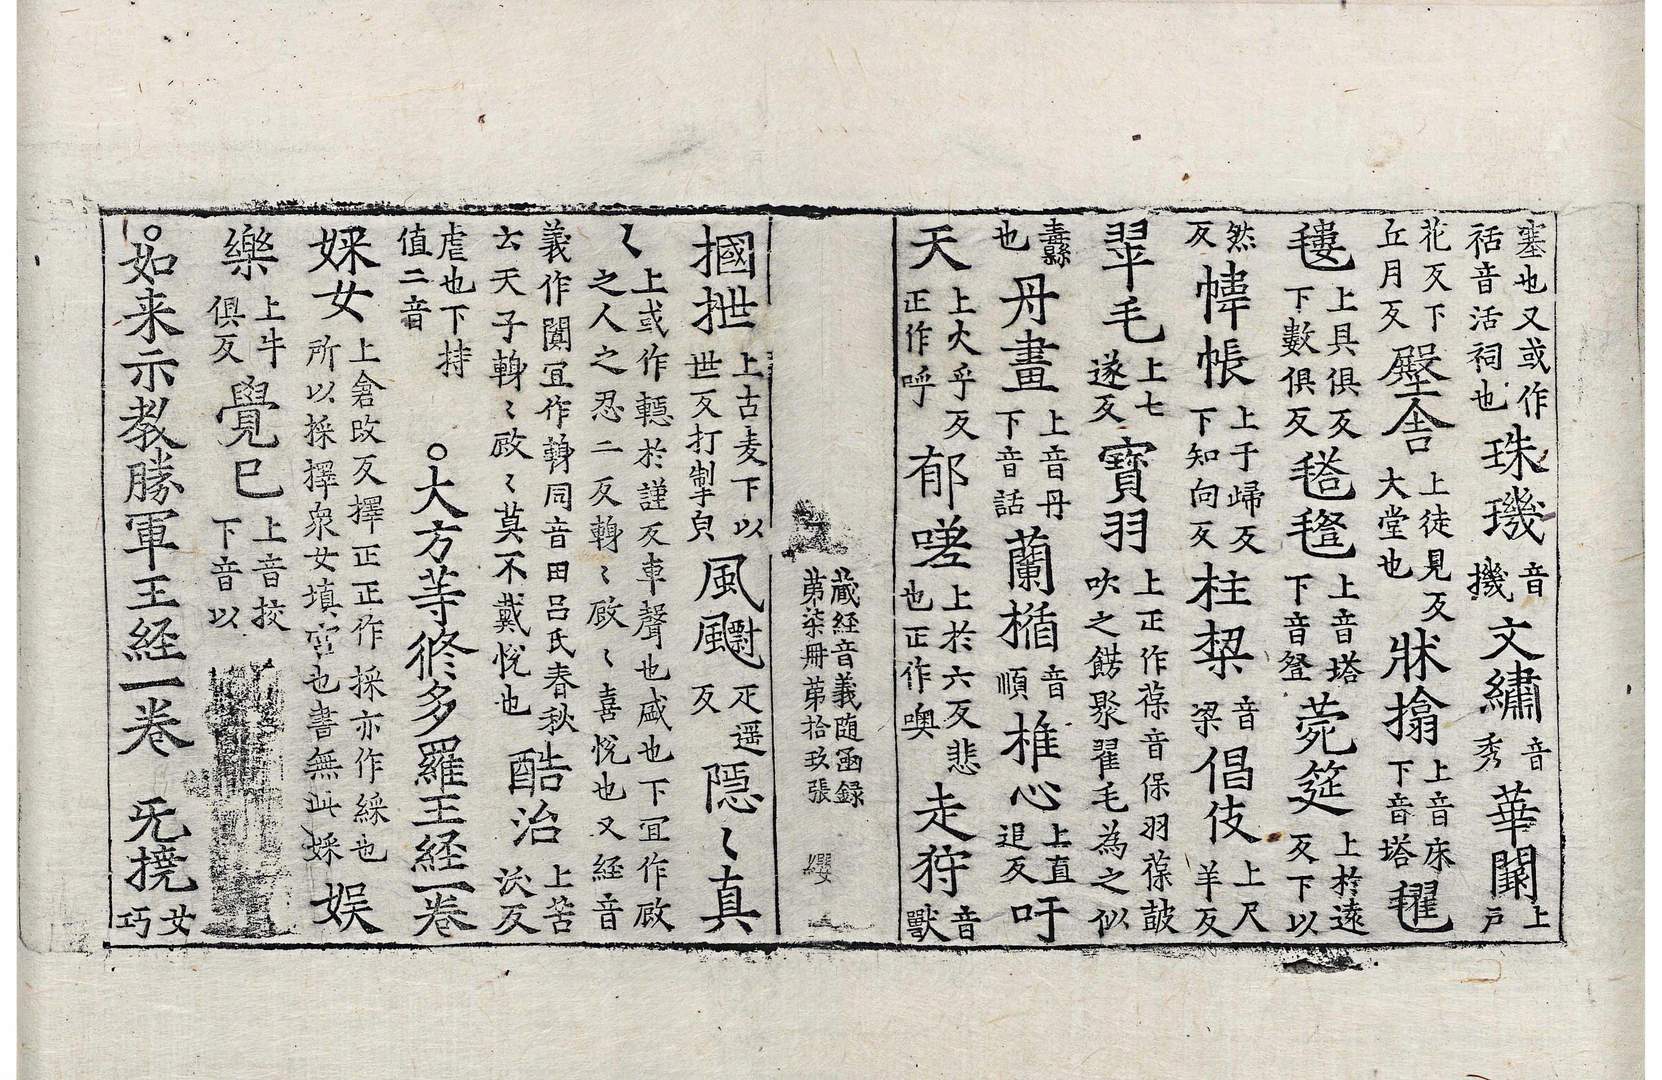 塞也又或作𥙿音活祠也珠璣音機文繡音秀華闠上戶
花反下丘月反壂舍上徒見反大堂也牀㩉上音床下音塔㲣
𣰽上具俱反下數俱反毾㲪上音塔下音登菀筵上於遠反下以
然反幃帳上于歸反下知向反柱椝音梁倡伎上尺羊反
翆毛上七遂反寶羽上正作葆音保羽葆皷吹之餝聚翟毛為之似
纛縣也丹畫上音丹下音話蘭楯音順椎心上直追反吁
天上火乎反正作呼郁嗟上於六反悲也正作噢走狩音獸
藏經音義隨函録
第柒冊第拾玖張
纓
摑抴上古麦下以世反打掣皃風飀疋遥反隱〻真
〻上或作轜於謹反車聲也盛也下冝作㪇之人之忍二反轉〻㪇〻喜恱也又經音
義作闐冝作轉同音田吕氏春秋云天子轉〻㪇〻莫不戴恱也酷治上苦沃反
虐也下持值二音。大方等修多羅王経一卷
婇女上倉改反擇正正作採亦作綵也所以採擇衆女填宮也書無此婇娱
樂上牛俱反覺巳上音挍下音以
。如来示教勝軍王経一卷 旡撓女巧